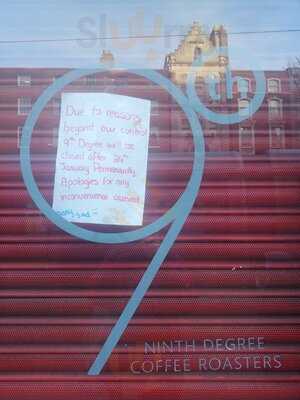 sluurpy
9th
Due to reasons
beyond our control
9th Degree will be
closed after 24th
January Permanently.
Apologies for any
inconvenience caused.
NINTH DEGREE
COFFEE ROASTERS